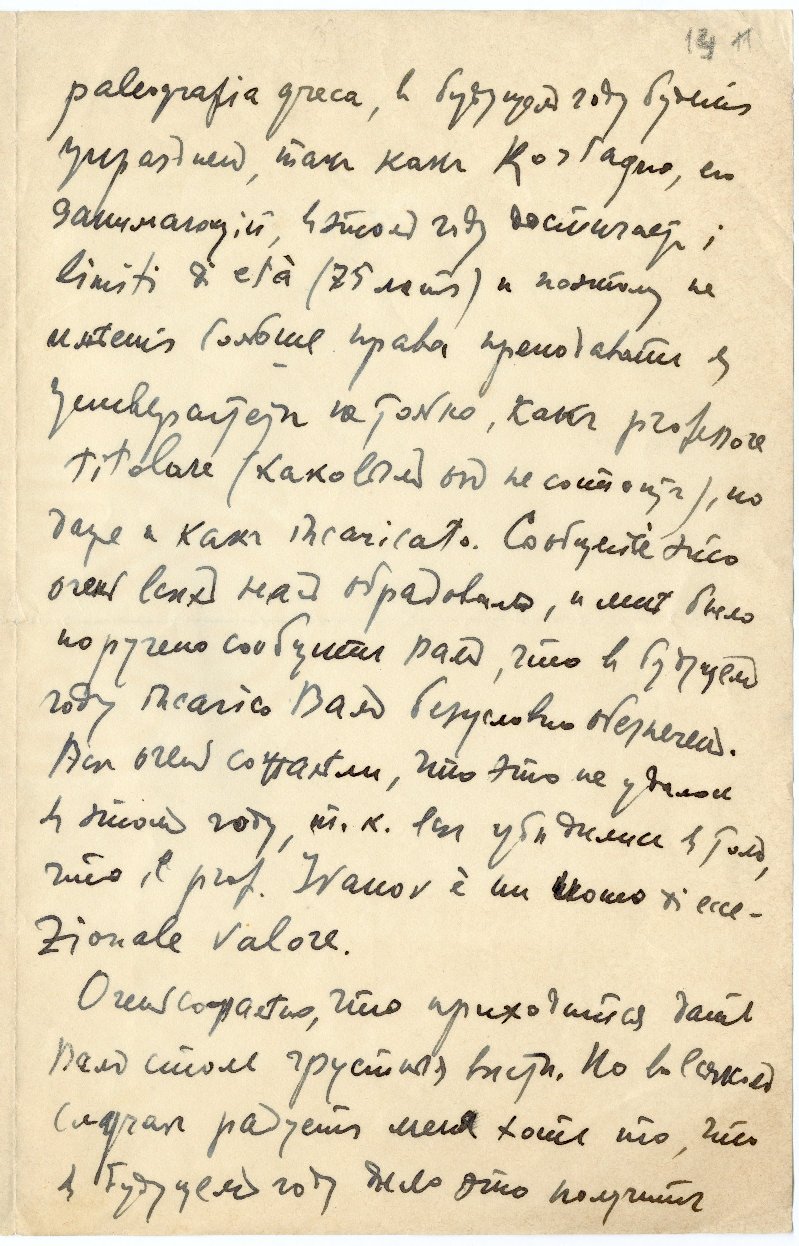 paleografia greca, въ будущемъ году будетъ
упраздненъ, такъ какъ Rostagno, ею
занимающiй, въ этомъ году достигаетъ i
limiti di età (75 лѣтъ) и поэтому не
имѣетъ больше права преподавать въ
университетѣ не только, какъ professore
titolare (каковымъ онъ не состоитъ), но
даже и какъ incaricato. Сообщенiе это
очень всѣхъ насъ обрадовало, и мнѣ было
поручено сообщить Вамъ, что въ будущемъ
году incarico Вамъ безусловно обезпеченъ.
Всѣ очень сожалѣли, что это не удалось
въ этомъ году, т. к. всѣ убѣдились въ томъ,
что il prof. Ivanov è un uomo di ecce-
zionale valore.
Очень сожалѣю, что приходится дать
Вамъ столь грустныя вѣсти. Но во всякомъ
случаѣ радуетъ меня хоть то, что
въ будущемъ году дѣло это получитъ